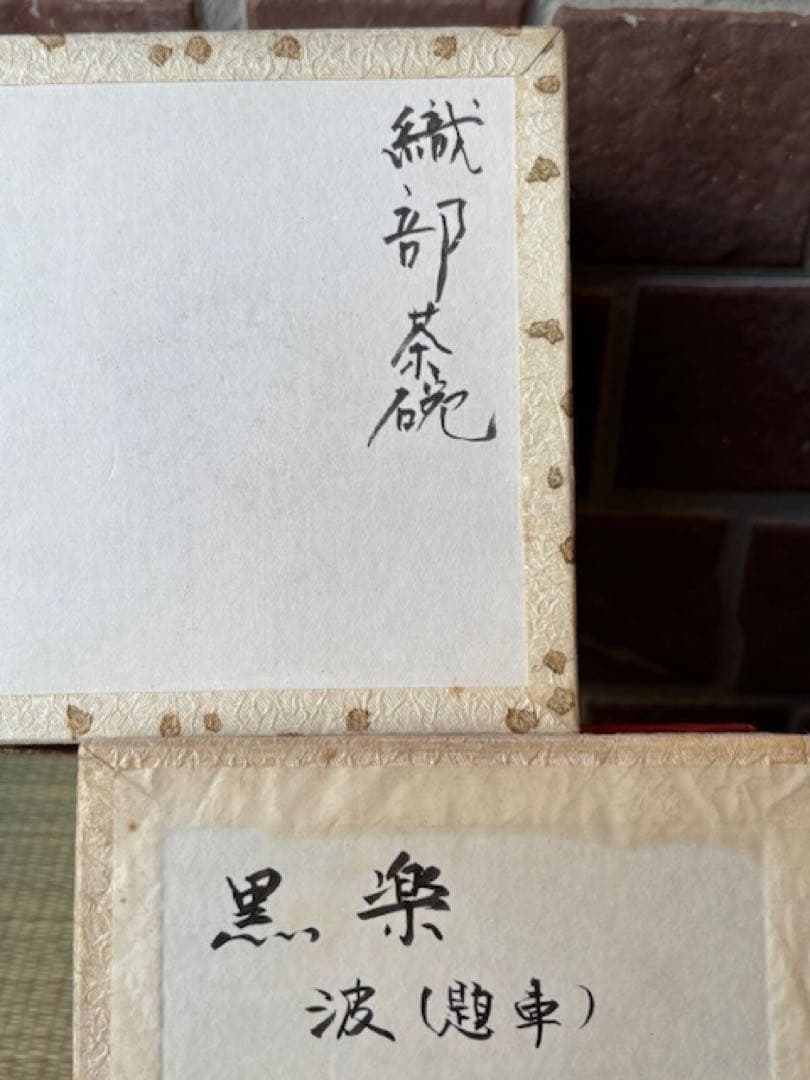 織部茶碗
黒楽
波(題車)